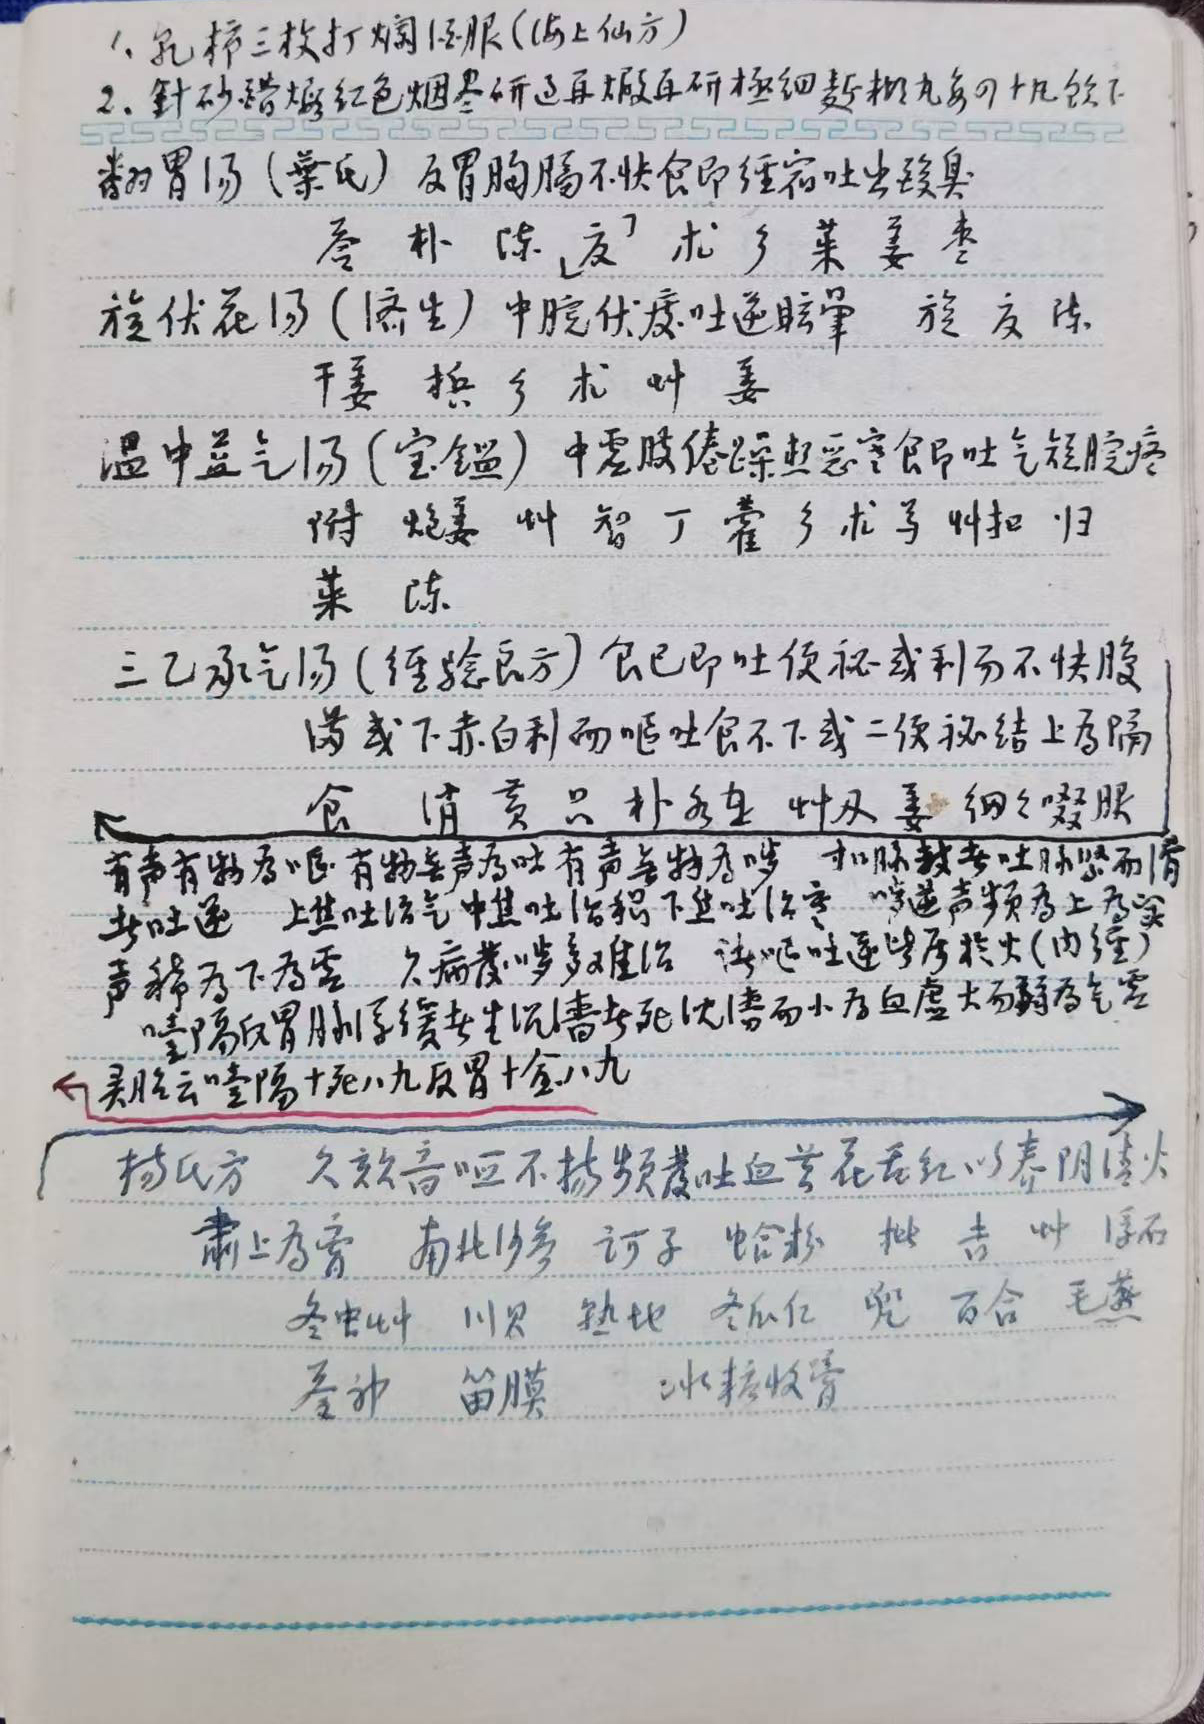 1、乳柿三枚打烂酒服(海上仙方)
2、針砂醋煅红色烟尽研过再煅再研極细麪糊丸每四十丸飲下
翻胃汤(葉氏) 反胃胸膈不快食即經宿吐出酸臭
苓 朴 陈 夏 术 参 萊 姜 枣
旋伏花汤(济生) 中脘伏痰吐逆眩暈 旋 夏 陈
干姜 槟 参 术 艸 姜
温中益气汤(宝鑑) 中虚肢倦躁热恶寒食即吐气短脘疼
附 炮姜 艸 智 丁 藿 参 术 芎 艸扣 归
萊 陈
三乙承气汤(經驗良方) 食已即吐便祕或利而不快腹
满或下赤白利而嘔吐食不下或二便祕结上為隔
食 消 黄 只 朴 艸 姜 细々啜服
有声有物為嘔有物無声為吐有声無物為哕 寸口脉数者吐脉紧而濇
者吐逆 上焦吐治气中焦吐治積下焦吐治寒 哕逆声频為上為实
声稀為下為虚 久病發哕多难治 诸嘔吐逆皆属於火(内經)
噎隔反胃脉浮缓者生沉濇者死沈濇而小为血虚大而弱为气虚
灵胎云噎隔十死八九反胃十全八九
杨氏方 久欬音哑不扬频發吐血苔花舌红以养阴清火
肃上為膏 南北沙参 訶子 蛤粉 枇 吉 艸 浮石
冬虫艸 川贝 熟地 冬瓜仁 兜 百合 毛燕
苓神 笛膜 冰糖收膏